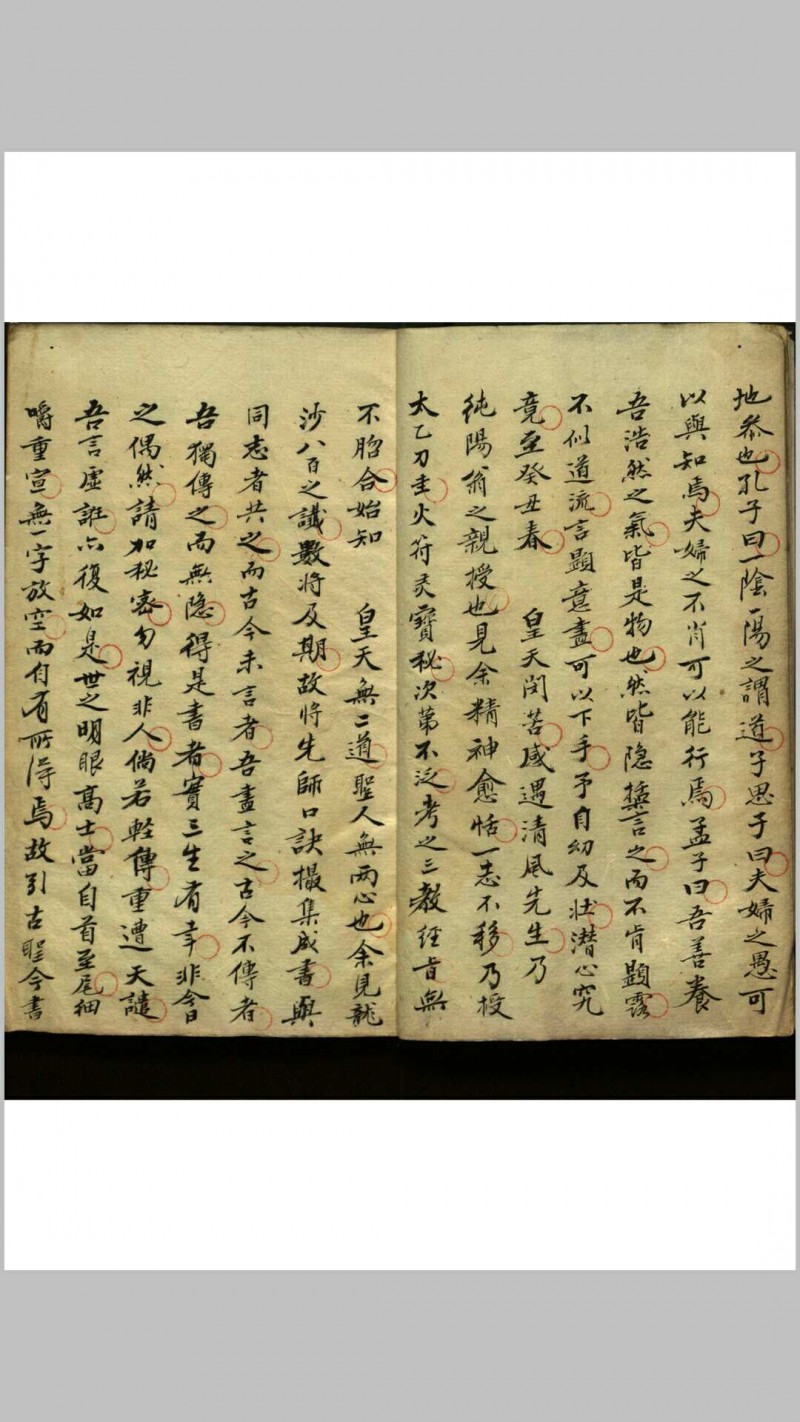 地泰也孔子曰一陰一陽之謂道子思子曰夫婦之愚可
以與知焉夫婦之不肖可以能行焉孟子曰吾善養
吾浩然之氣皆是物也然皆隐藴言之而不肯顕露
不似道流言顕意盡可以下手予自幼及壮潜心究
竟至癸丑春 皇天閔苦感遇清風先生乃
純陽翁之親授也見余精神愈恬一志不移乃授
太乙刀圭火符灵寶秘次第不泛考之三教經旨無
不脗合始知 皇天無二道聖人無两心也余見龍
沙八百之讖數將及期故將先師口訣撮集成書與
同志者共之而古今未言者吾盡言之古今不傳者
吾獨傳之而無隐得是書者實三生有幸非今日
之偶然請加秘密勿視非人倘若軽傳重遭天譴
吾言虛誑亦復如是世之明眼髙士當自首至尾細
嚼重宣無一字放空而自有所得焉故引古聖今書